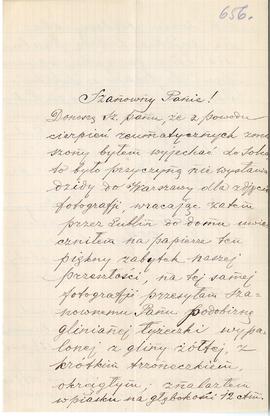 656.
Szanowny Panie!
Donoszę Sz. Panu, że z powodu
cierpień reumatycznych zmu
szony byłem wyjechać do
to było przyczyną nie wysłania
dzidy do Warszawy dla zdjęcia
fotografji, wracając zatem
przez Lublin do domu uwie
czniłem na papierze ten
piękny zabytek naszej
przeszłości, na tej samej
fotografji przesyłam Sza-
nownemu Panu podobiznę
glinianej łyżeczki wypa-
lonej z gliny żółtej, z
krótkim trzoneczkiem,
okrągłym; znalazłem
w piasku na głębokości 12 ctm.